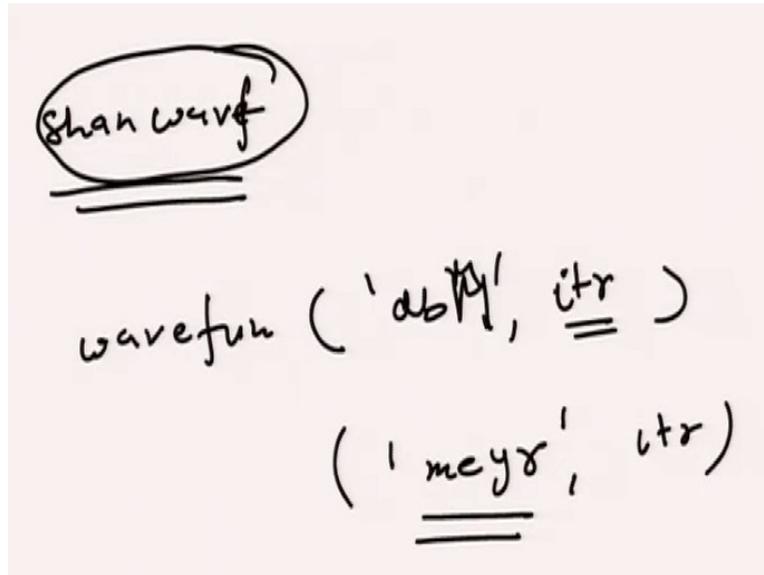 shanwavf
wavefun ( 'db', itr )
( 'meyr', itr )